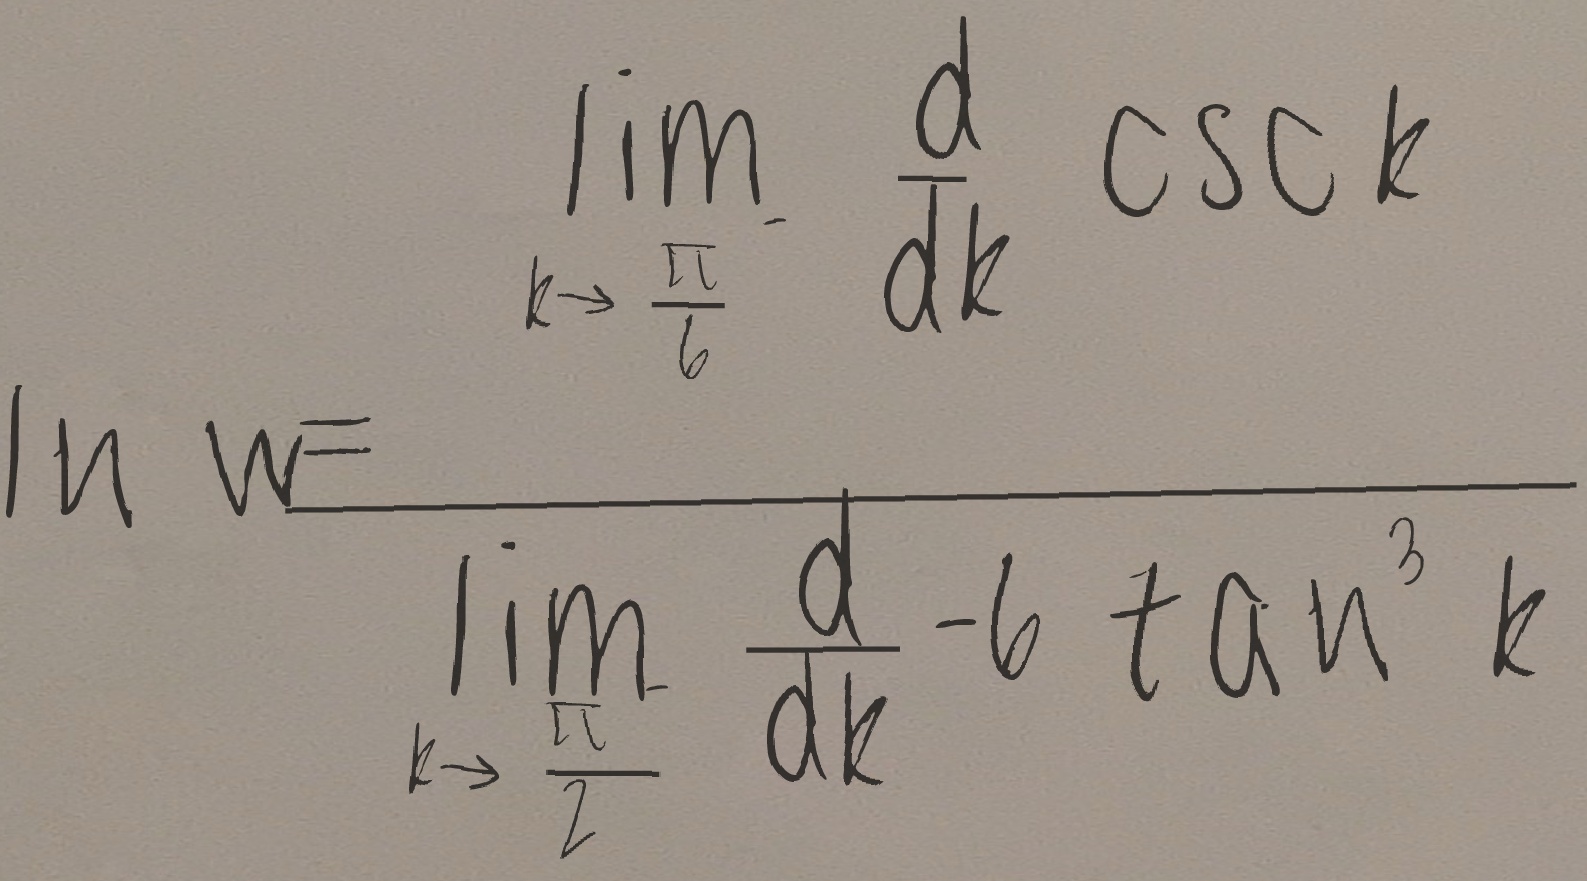 \ln w = \frac{\lim_{k \to \frac{\pi}{6}^-} \frac{d}{dk} \csc k}{\lim_{k \to \frac{\pi}{2}^-} \frac{d}{dk} -6 \tan^3 k}